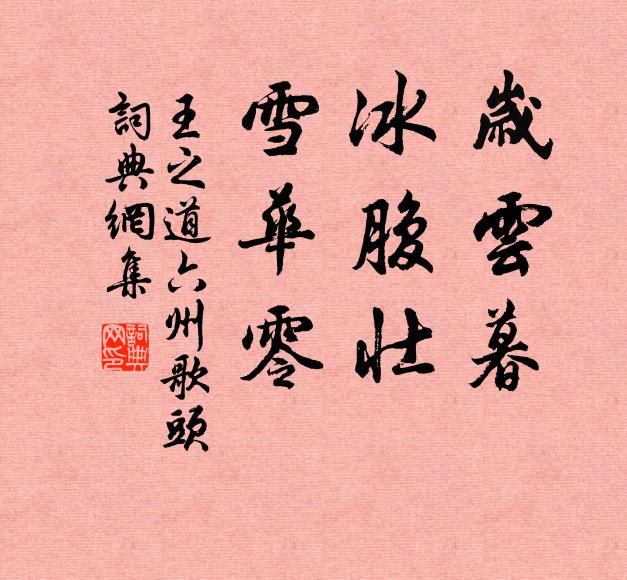 歲雲暮
冰腹壯
雪華零
王之道六州歌頭
詞典網集
詞典网印